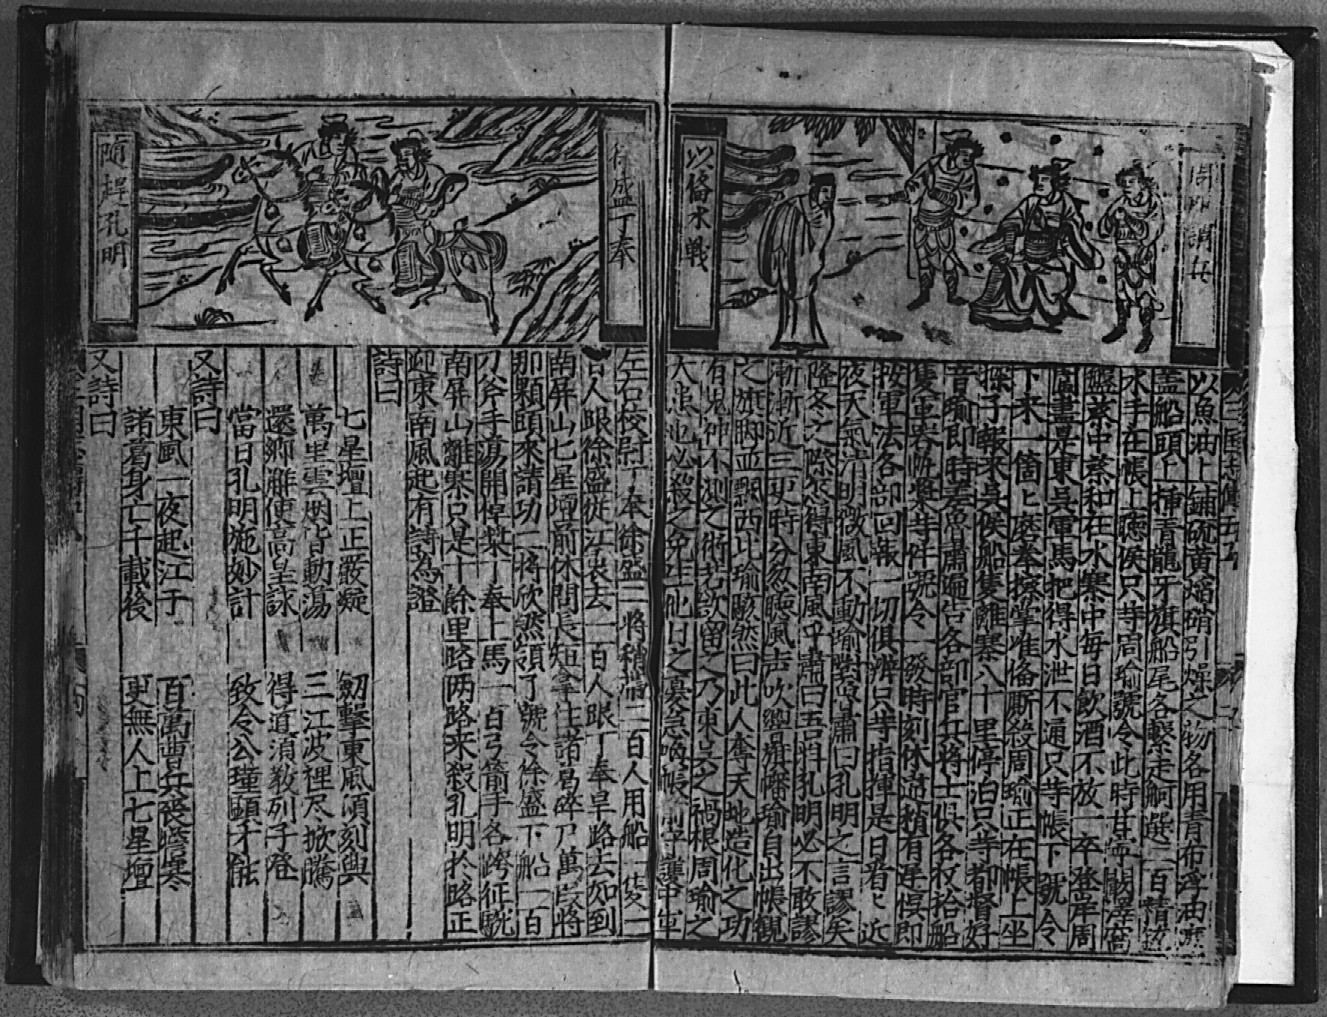 以俻水戰
以魚油上鋪硫黄焰硝引燥之物各用青布浮油
盖船頭上揷青龍牙旗船尾各繫走舸選二百精
水手在帳上聽候只等周瑜號令此時甘寧闞澤窩
蔡中蔡和在水寨中每日飲酒不放一卒登岸周
盡是東吳軍馬把得水泄不通只等帳下號令
下来一箇匕磨拳擦掌准俻厮殺周瑜正在帳上坐
探子報來吳候船隻離寨八十里停泊只等都督好
音瑜即時差魯肅遍告各部官兵將士俱各收拾船
隻軍器帆槳等件號令一發時刻休違稍有遲悮即
按軍法各部回報一切俱辨只等指揮是日看匕近
夜天氣清明微風不動瑜對魯肅曰孔明之言謬矣
隆冬之際怎得東南風乎肅曰吾料孔明必不敢謬
漸漸近三更時分忽聽風声吹響旗幡瑜自出帳觀
之旗脚並飄西北瑜駭然曰此人奪天地造化之功
有鬼神不測之術若欲留之乃東吳之禍根周瑜之
大患也必殺之免生他日之憂急喚帳前守護中軍
徐盛丁奉
隨趕孔明
左右校尉丁奉徐盛二將稍帶二百人用船一隻一
百人跟徐盛從江裏去一百人跟丁奉旱路去如到
南屏山七星壇前休問長短拿住諸曷碎尸萬段將
那顆頭來請功二將欣然領了號令徐盛下船一百
刀斧手蕩開棹槳丁奉上馬一百弓箭手各跨征騎
南屏山離寨只是十餘里路两路来殺孔明於路正
迎東南風起有詩為證
詩曰
七星壇上正嚴凝　劒擊東風湏刻興
萬里雲烟皆動蕩　三江波裡尽掀騰
還鄉雕使高皇詠　得道湏教列子登
當日孔明施妙計　致令公瑾顕才能
又詩曰
東風一夜起江干　百萬曹兵喪膽寒
諸葛身亡千載後　更無人上七星壇
又詩曰